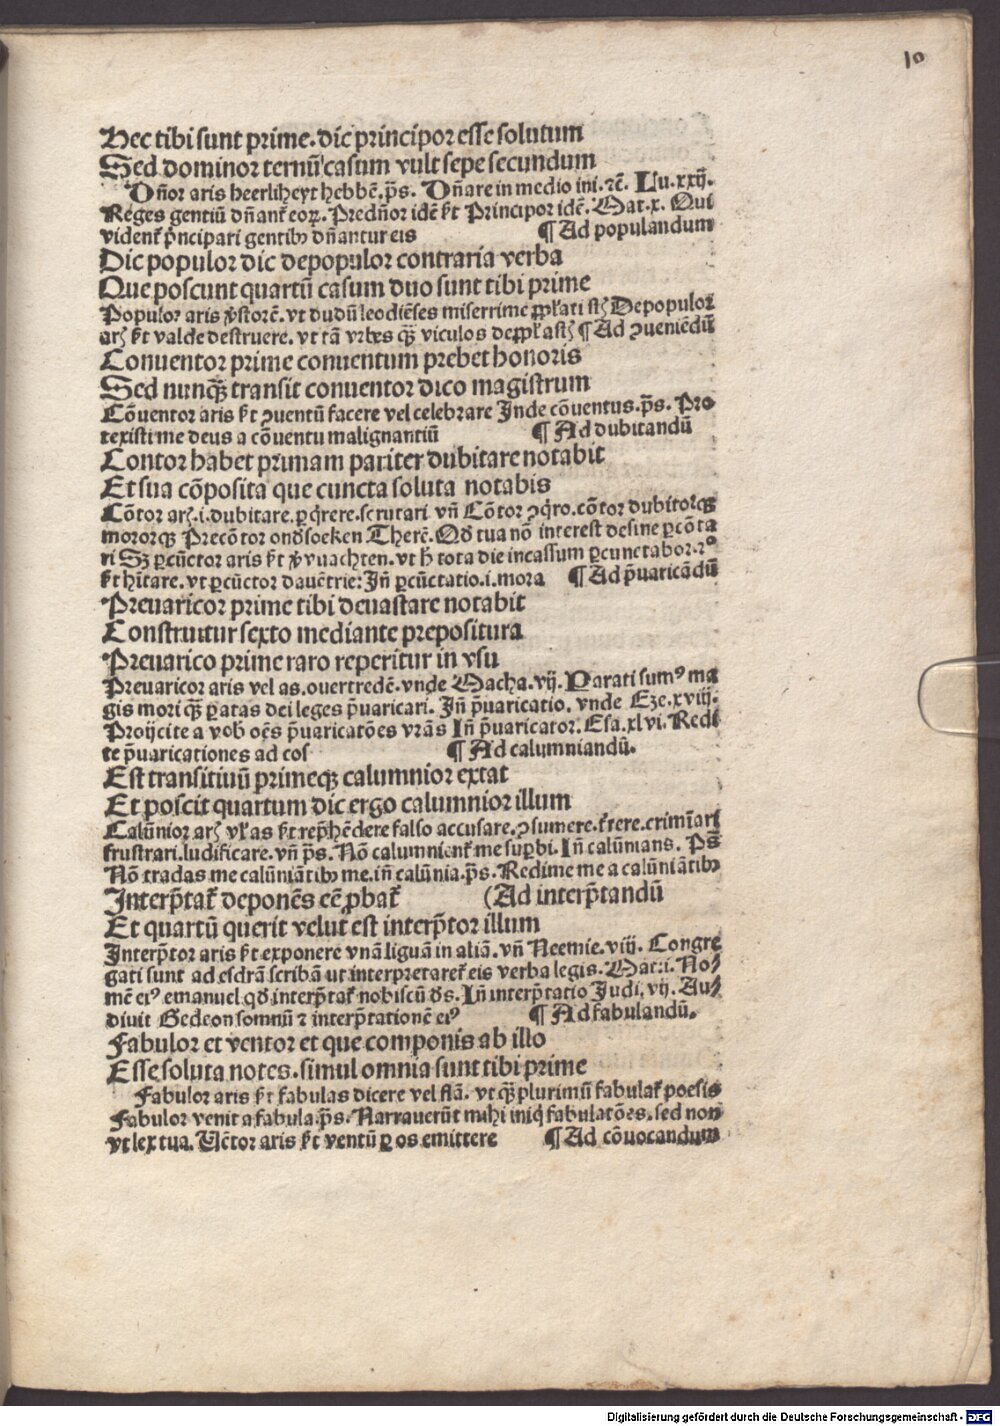 10
Hec tibi sunt prime. dic principor esse solutum
Sed dominor ternū casum vult sepe secundum
Dn̄or aris heerliheyt hebbē. ps̄. Dn̄are in medio ini. ⁊c̄. Lu. xxij.
Reges gentiū dn̄ant᷑ eoꝝ. Predn̄or idē st᷑ Principor idē. Mat. x. Qui
vident᷑ p̄ncipari gentibꝰ dn̄antur eis ¶ Ad populandum
Dic populor dic depopulor contraria verba
Que poscunt quartū casum duo sunt tibi prime
Populor aris vt dudū leodiēses miserrime Depopulor
valde destruere. vt tā vrbes qꝫ viculos ¶ Ad ꝯueniēdū
Conuentor prime conuentum prebet honoris
Sed nunqꝫ transit conuentor dico magistrum
Cōuentor aris ꝯuentū facere vel celebrare Inde cōuentus. ps̄. Pro
texisti me deus a cōuentu malignantiū ¶ Ad dubitandū
Contor habet primam pariter dubitare notabit
Et sua cōposita que cuncta soluta notabis
Cōtor .i. dubitare. ꝑq̄rere. scrutari vn̄ Cōtor ꝯq̄ro. cōtor dubitorqꝫ
mororqꝫ Precōtor ondsoeken Therē. Qd̄ tua nō interest desine ꝑcōta
ri Sꝫ ꝑcūctor aris vt h̄ tota die incassum ꝑcunctabor. ⁊ᵒ
hītare. vt ꝑcūctor dauētrie: Jn̄ ꝑcūctatio .i. mora ¶ Ad p̄uaricādū
Preuaricor prime tibi deuastare notabit
Construitur sexto mediante prepositura
Preuarico prime raro reperitur in vsu
Preuaricor aris vel as. ouertredē. vnde Macha. vij. Parati sumꝰ ma
gis mori qꝫ patrias dei leges p̄uaricari. Jn̄ p̄uaricatio. vnde Eze. xviij.
Proijcite a vob̄ oēs p̄uaricatōes vr̄as Jn̄ p̄uaricator. Esa. xlvi. Redi
te p̄uaricationes ad cor ¶ Ad calumniandū.
Est transitiuū primeqꝫ calumnior extat
Et poscit quartum dic ergo calumnior illum
Calūnior reph̄ēdere falso accusare. ꝯsumere. crimīari
frustrari. ludificare. vn̄ ps̄. Nō calumnient᷑ me suꝑbi. Jn̄ calūnians. Ps̄
Nō tradas me calūniātibꝰ me. in̄ calūnia. ps̄. Redime me a calūniātibꝰ
Jnterp̄tat᷑ deponēs eē ꝓbat᷑ (Ad interp̄tandū
Et quartū querit velut est interp̄tor illum
Jnterp̄tor aris st᷑ exponere vnā liguā in aliā. vn̄ Neemie. viij. Congre
gati sunt ad esdrā scribā ut interpretaret᷑ eis verba legis. Mat. i. No⸗
mē eiꝰ emanuel qd̄ interp̄tat᷑ nobiscū ds̄. Jn̄ interp̄tatio Judi. vij. Au⸗
diuit Gedeon somnū ⁊ interp̄tationē eiꝰ ¶ Ad fabulandū.
Fabulor et ventor et que componis ab illo
Esse soluta notes. simul omnia sunt tibi prime
Fabulor aris st᷑ fabulas dicere vel flā. vt qꝫ plurimū fabulat᷑ poesis
Fabulor venit a fabula. ps̄. Narrauerūt mihi iniq̄ fabulatōes. sed non
vt lex tua. Vētor aris st᷑ ventū ꝑ os emittere ¶ Ad cōuocandum
Digitalisierung gefördert durch die Deutsche Forschungsgemeinschaft - DFG